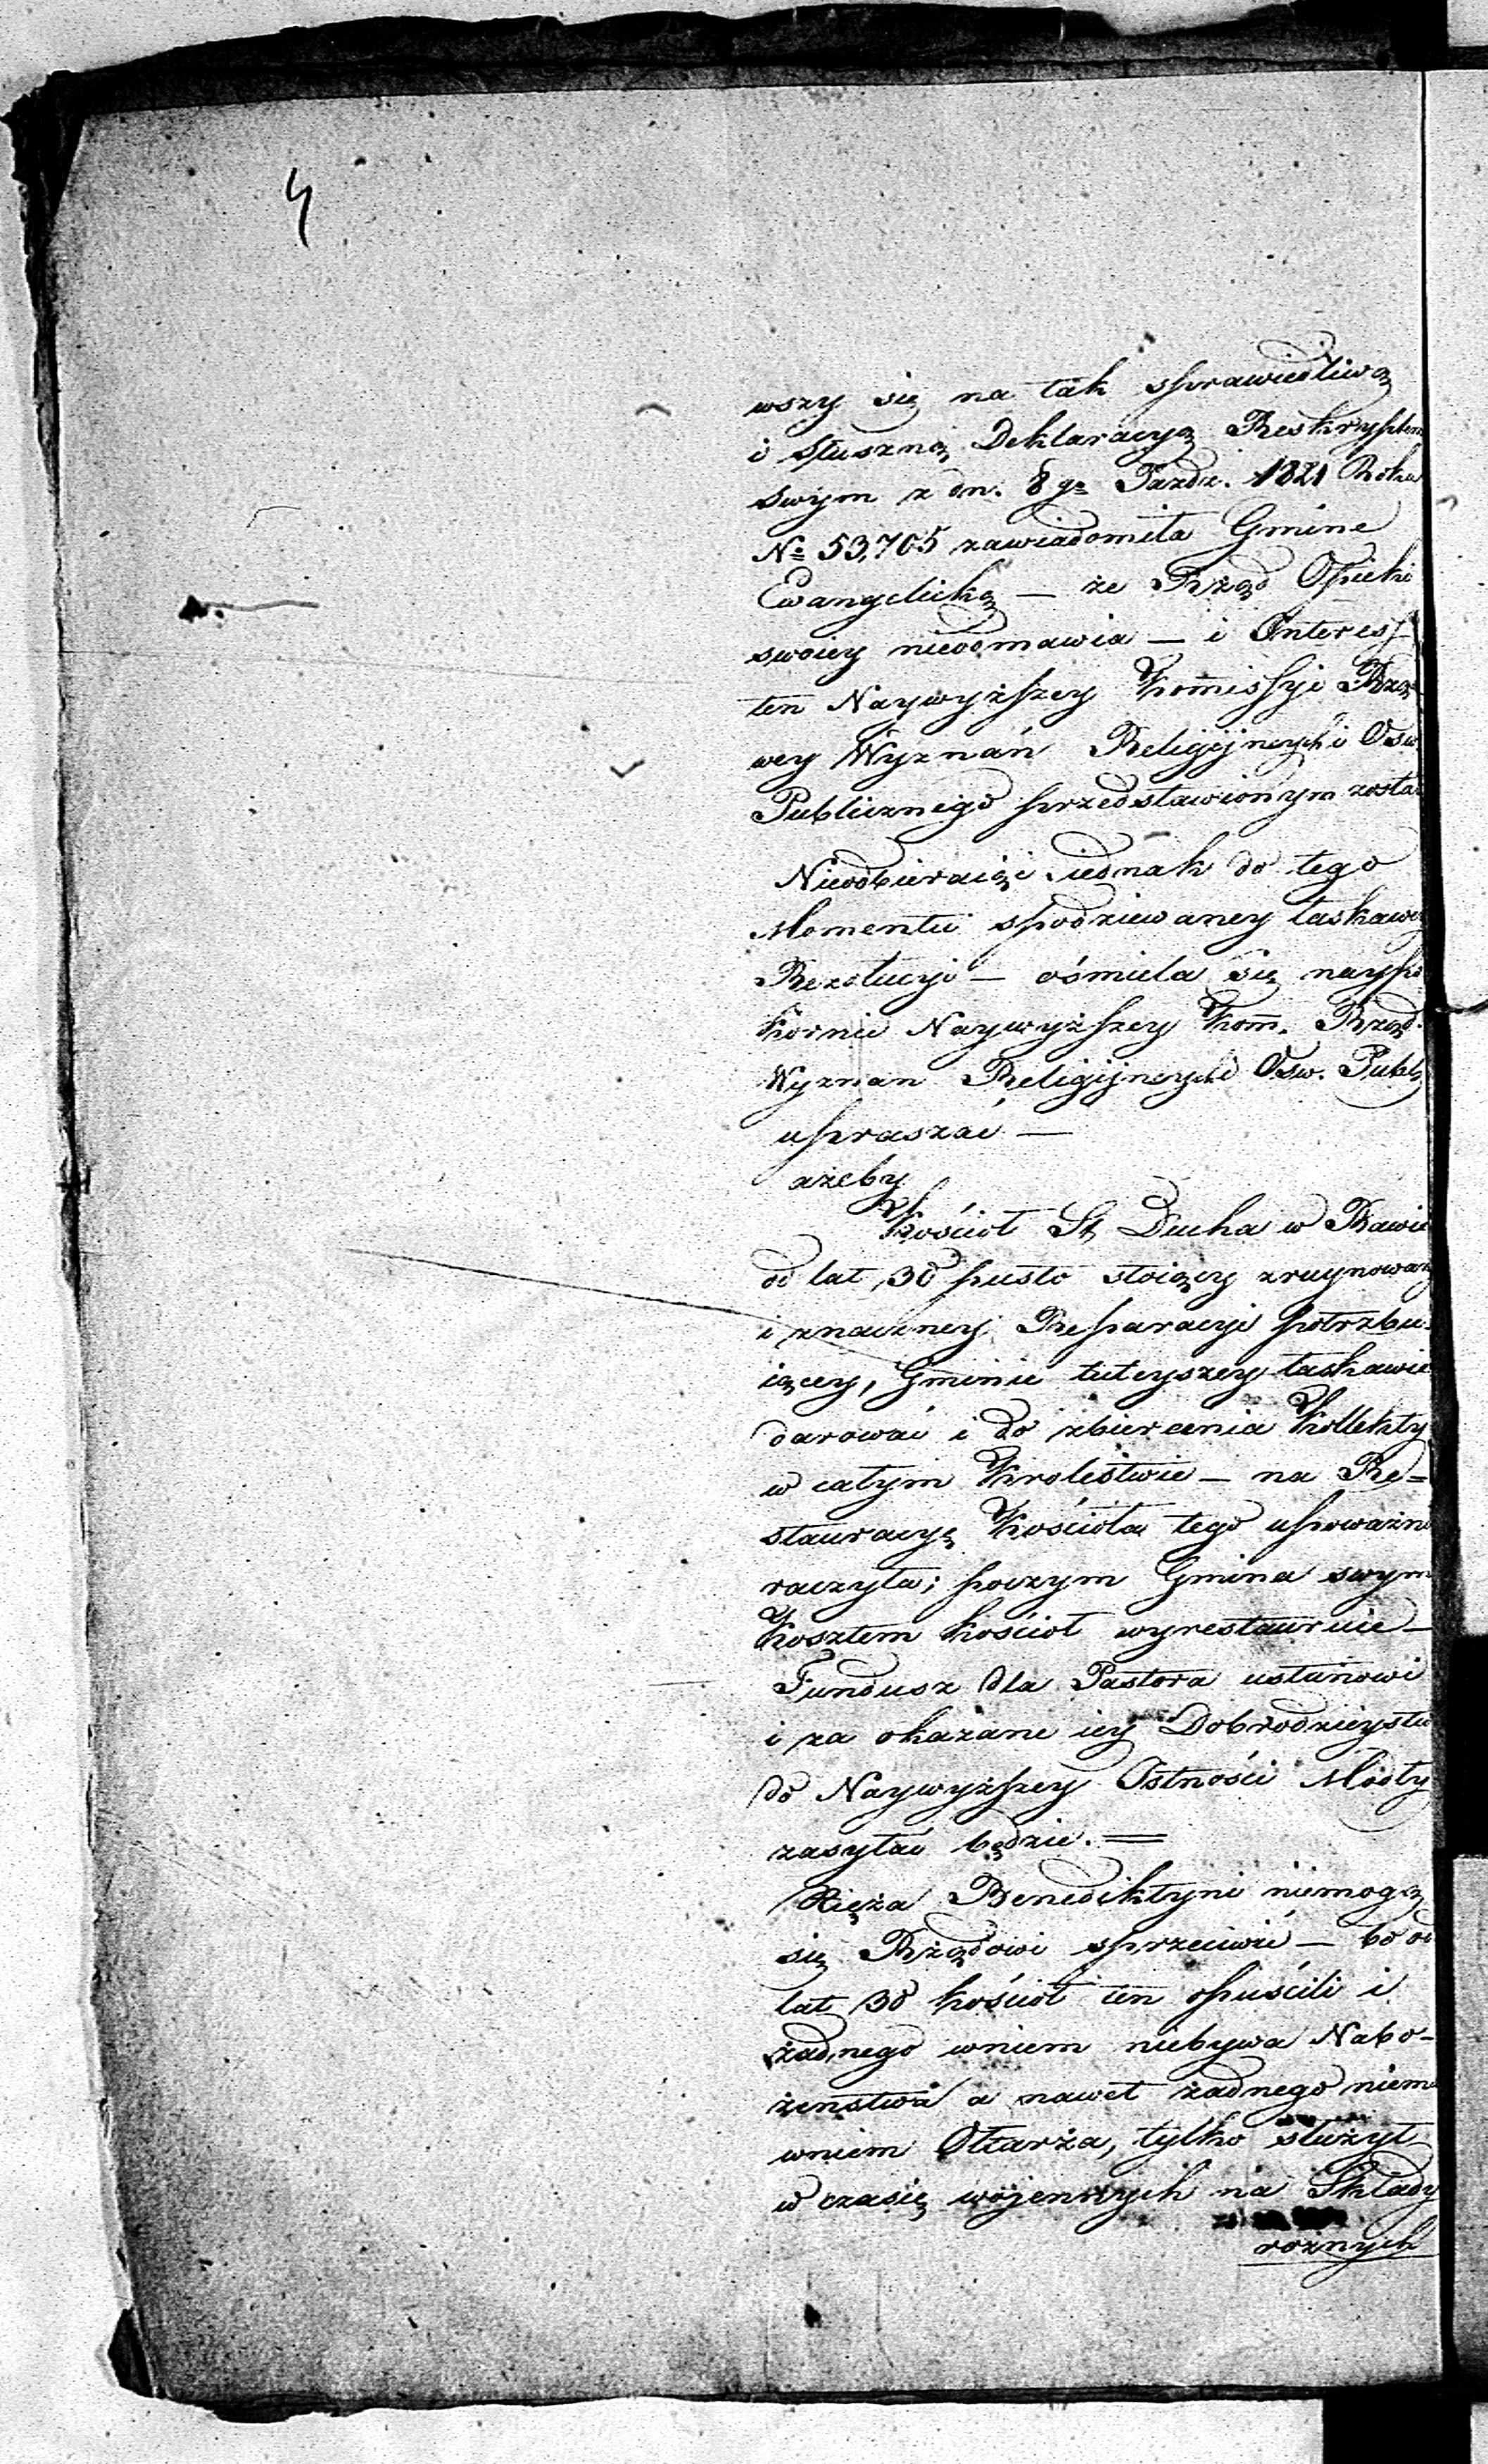 4
wszy się na tak sprawiedliwą
i słuszną Deklaracyą Reskryptem
swym z dn. 8 go Pazdz. 1821 Roku
No 53,705 zawiadomiła Gmine
Ewangelicką — że Rząd Opieki
swoiey nieodmawia — i Interess
ten Naywyższey Kom̄issyi Rzą
wey Wyznań Religijnych i Osw.
Publicznego przedstawionym został
Nieodbieraiąc iednak do tego
Momentu spodziewaney łaskawey
Rezolucyi — ośmiela się naypo
kornie Naywyższey Kom̄. Rząd.
Wyznan Religijnych i Osw. Publ.
upraszać —
ażeby
Kościoł St. Ducha w Rawie
od lat 30 pusto stoiący zruynowany
i znaczney Reparacyi potrzbu-
iącey, Gminie tuteyszey łaskawie
darować i do zbierania Kollekty
w całym Krolestwie — na Re-
stauracyę Kościoła tego upoważnić
raczyła; poczym Gmina swym
Kosztem kościoł wyrestauruie —
Fundusz dla Pastora ustanowi
i za okazane iey Dobrodzieystwo
do Naywyższey Istności Modły
zasyłać będzie. =
Xięża Benediktyni niemogą
się Rządowi sprzeciwić — bo od
lat 30 kościoł ten opuścili i
żadnego wniem niebywa Nabo-
żenstwa a nawet żadnego niema
wniem Ołtarza, tylko służył
w czasię wojennych na Składy
rożnych